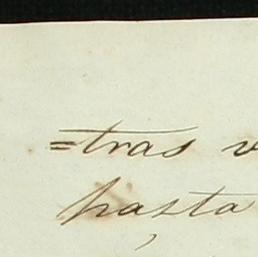 =tras
hasta